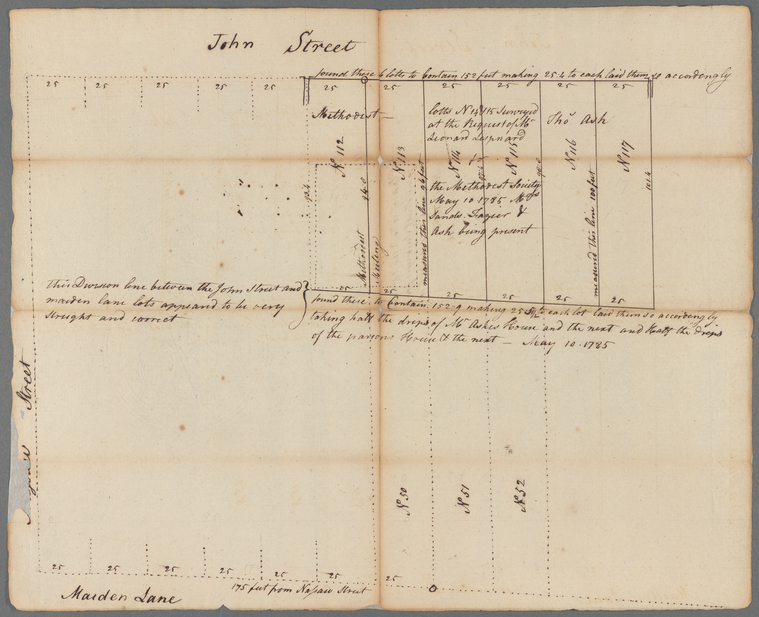 John Street
found these 6 lotts to Contain 152 feet making 25.4 to each laid them so accordengly
25 25 25 25 25 25 25 25 25
Methodest
N 112
N 113
N 114
N 115
N 116
N 117
lotts N 114 & 115 Surveyed
at the Request of Mr
Leonard
&
the Methodest Society
May 10 1785 Mr
Sands &
Ash being present
Thos Ash
Methodest
Meeting
measured this line
measured this line 100 feet
25 25 25 25 25 25
This Division line between the John Street and
maiden lane lots appeared to be very
streight and correct
found these to Contain 152 9 making 25 5½ to each lot laid them so accordengly
taking half the drips of Mr Ashes House and the next and Half the drips
of the parsons House & the next — May 10. 1785
Street
N 50
N 51
N 52
25 25 25 25 25 25 25
175 feet from Nassaw Street
Maiden Lane